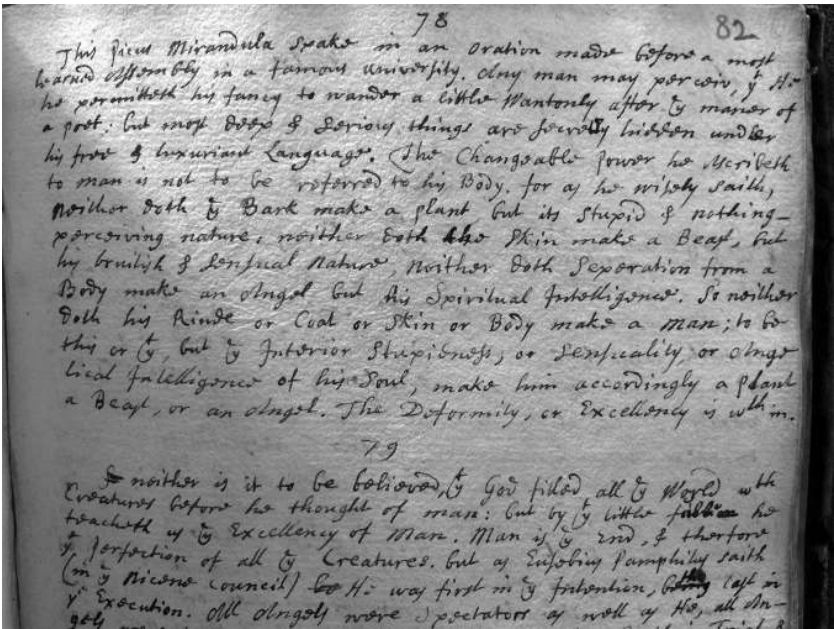 78
82
This Picus Mirandula Spake in an Oration made before a most
learned Assembly in a famous university. Any man may perceiv, yt He
he permitteth his fancy to wander a little Wantonly after ye maner of
a poet: but most deep & serious things are secretly hidden under
his free & luxuriant Language. The Changeable power he Ascribeth
to man is not to be referred to his Body. for as he wisely saith,
Neither doth ye Bark make a plant, but its stupid & nothing-
perceiving nature; neither doth the Skin make a Beast, but
his bruitish & sensual Nature, neither doth Seperation from a
Body make an Angel but his Spiritual Intelligence. So neither
doth his Rinde or Coat or Skin or Body make a Man; to be
this or yt, but ye Interior Stupidness, or Sensuality, or Ange
lical Intelligence of his Soul, make him accordingly a plant
a Beast, or an Angel. The Deformity, or Excellency is wth in.
79
neither is it to be believed, yt God filled all ye World wth
Creatures before he thought of man: but by yt little he
teacheth us ye Excellency of Man. Man is ye End, & therfore
ye perfection of all ye Creatures. but as Eusebius Pamphilus saith
(in ye Nicene Council) He was first in ye Intention, last in
ye Execution. All Angels were Spectators as well as He, all An-
gels